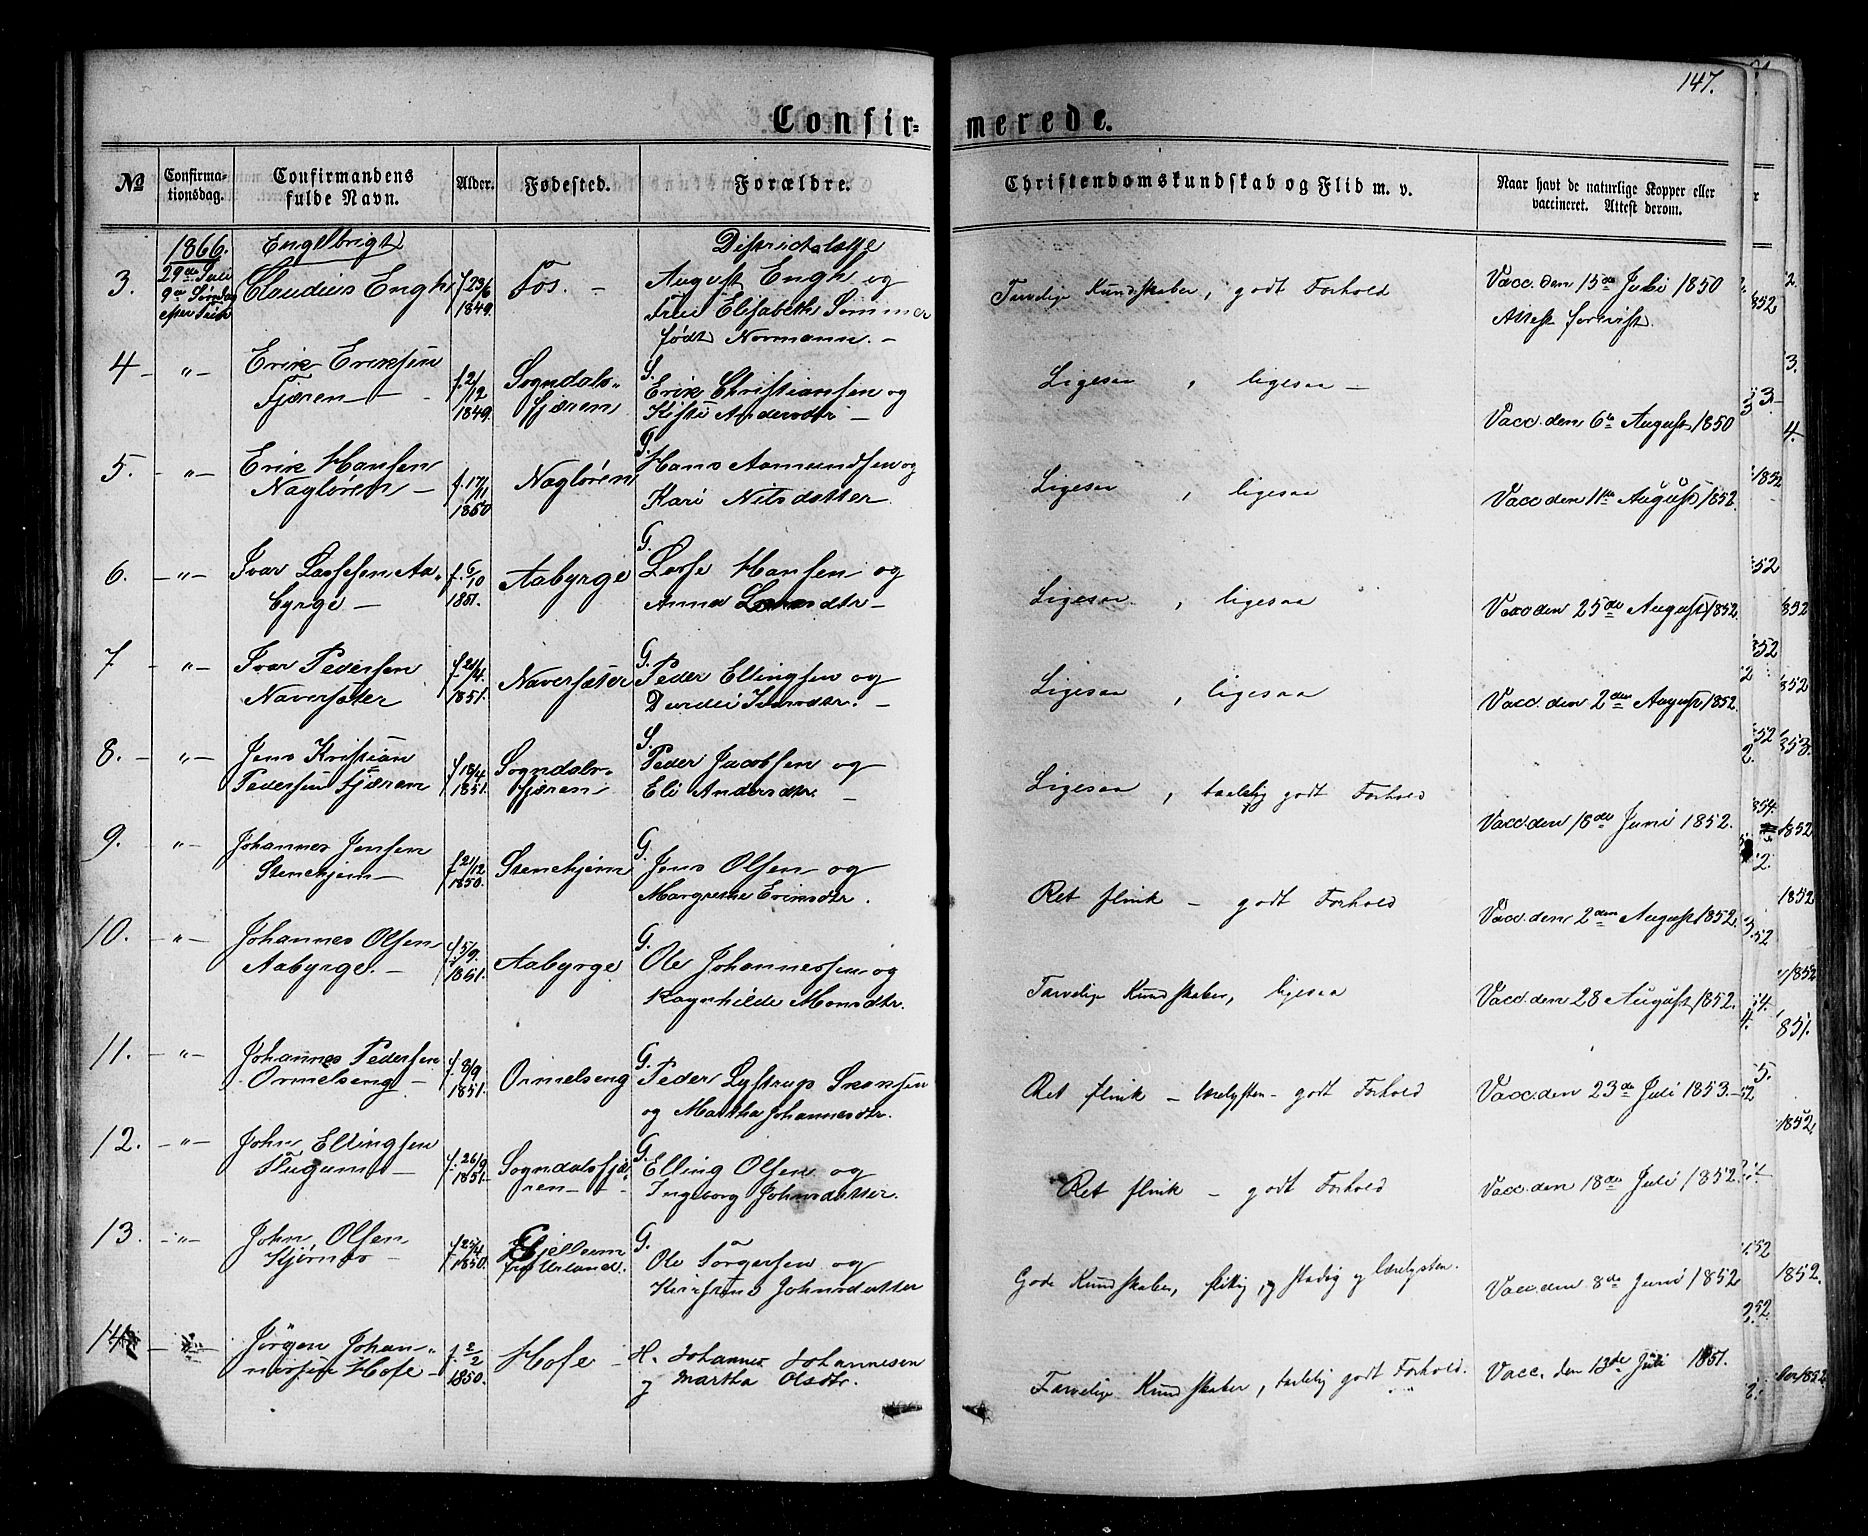 147.
Confir= merede.
№ Confirma- tionsdag. Confirmandens fulde Navn. Alder. Fødested. Forældre. Christendomskundskab og Flid m. v. Naar havt de naturlige Kopper eller vaccineret. Attest derom.
1866. Engelbrigt Districtslæge
3. 29de Juli Claudius Engh f 23/6 Fos. – August Engh og Tarvelige Kundskaber, godt Forhold Vacc. den 15de Juli 1850
9de Søndag 1849. Frue Elisabeth Sommer Attest forevist.
efter født Normann. –
4 – „ – Erik Eriksen f. 2/12 Sogndals- S. Erik Christiansen og Ligesaa , ligesaa –
Fjæren – 1849. fjæren Kisti Andersdtr – Vacc. den 6te August 1850
5. – „ – Erik Hansen f. 17/11 Nagløren G. Hans Aamundsen og Ligesaa , ligesaa
Nagløren – 1850 Kari Nilsdatter. Vacc den 11te August 1852.
6. – „ – Ivar Lassesen Aa- f. 6/10 Aabyrge G. Lasse Hansen og Ligesaa , ligesaa
byrge – 1851. Anna dtr – Vacc den 25de August 1852.
7 – „ – Ivar Pedersen f. 21/4 Naversæter G. Peder Ellingsen og Ligesaa , ligesaa
Naversæter 1851. Durdei Ivarsdtr. – Vacc. den 2den August 1852.
8. – „ – Jens Kristian f 18/4 Sogndals- S. Peder Jacobsen og Ligesaa , taalelig godt Forhold
Pedersen Fjæren 1851. fjæren Eli Andersdtr. – Vacc. den 18de Juni 1852.
9. – „ – Johannes Jensen f. 21/12 Stenehjem G. Jens Olsen og Ret flink – godt Forhold
Stenehjem – 1850. Margrethe Eriksdtr. Vacc. den 2den August 1852.
10. – „ – Johannes Olsen f. 5/9. Aabyrge G. Ole Johannessen og Tarvelige Kundskaber, ligesaa
Aabyrge. – 1851. Ragnhilde Monsdtr. Vacc. den 28 August 1852.
11. – „ – Johannes Pedersen f. 8/9 Ormelseng G. Peder Lystrup Ret flink – lærelysten – godt Forhold Vacc. den 23de Juli 1853. –
Ormelseng – 1851. og Martha Johannesdtr.
12. – „ – John Ellingsen f. 26/9 Sogndalsfjæ- G. Elling Olsen og Ret flink – godt Forhold Vacc. den 18de Juli 1852.
Flugum – 1851. ren – Ingeborg Johnsdatter.
13. – „ – John Olsen f 25/4 G. Ole Torgersen og Gode Kundskaber, flittig, og stadig og lærelysten.
Kjørnes – 1850. fra Urland. Kirstens Johnsdatter Vacc. den 8de Juni 1852
14. – „ – Jørgen Johan- f. 2/2 Hofe – H. Johannes Johannesen
nessen Hofe – 1850. og Martha Olsdtr. Tarvelige Kundskaber, taalelig godt Forhold. Vacc. den 13de Juli 1851.